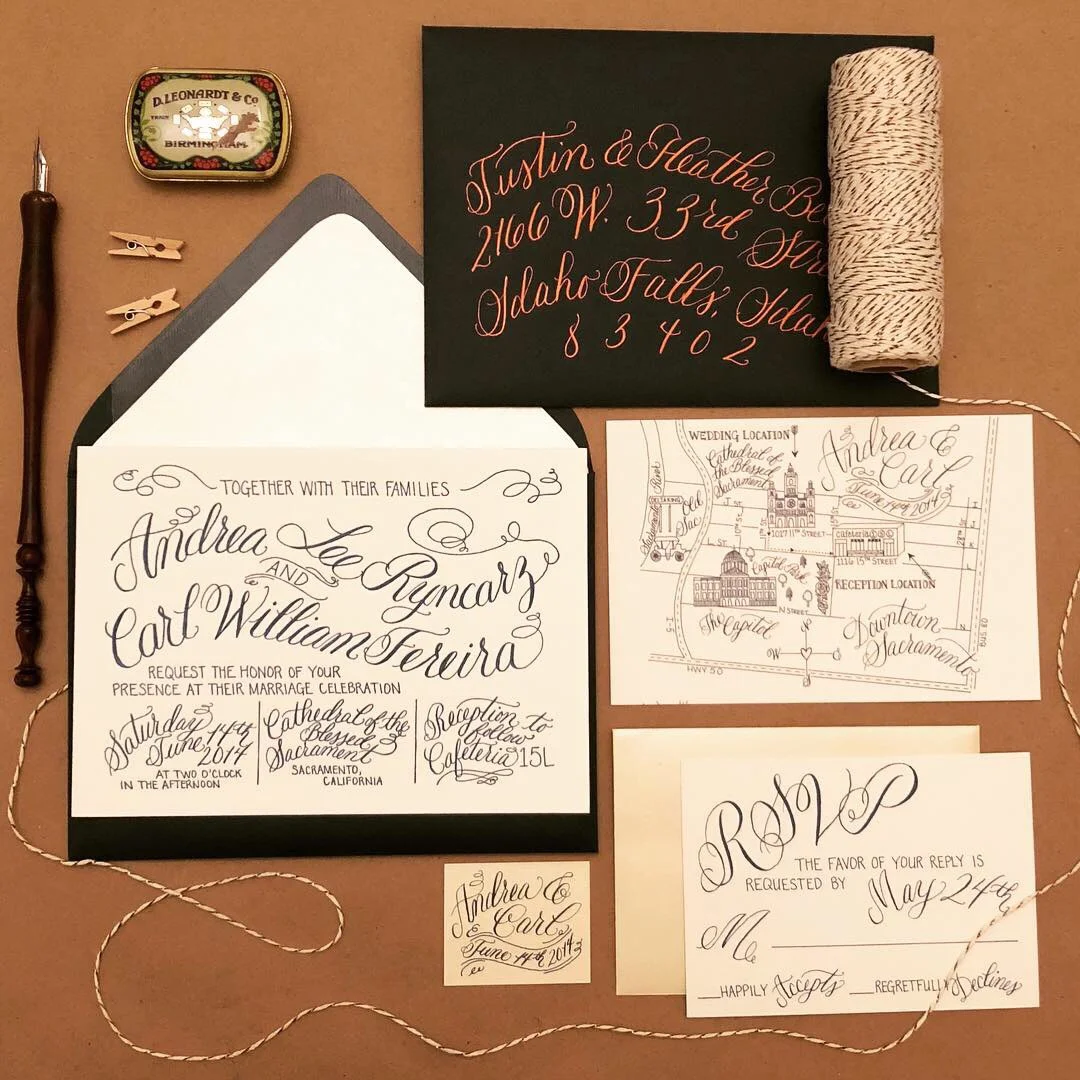 D. LEONARDT & Co
TRADE
BIRMINGHAM
Justin & Heather
2166 W. 33rd
Idaho Falls,
8 3 4 0 2
TOGETHER WITH THEIR FAMILIES
Andrea Lee Ryncarz
AND
Carl William Fereira
REQUEST THE HONOR OF YOUR
PRESENCE AT THEIR MARRIAGE CELEBRATION
Saturday
June 14th
2014
AT TWO O'CLOCK
IN THE AFTERNOON
Cathedral of the
Blessed
Sacrament
SACRAMENTO,
CALIFORNIA
Reception to
follow
Cafeteria 15L
WEDDING LOCATION
Cathedral of
the Blessed
Sacrament
Andrea &
Carl
June 14th 2014
DELTA KING
Old
Sac
Sacramento River
J ST.
L ST.
1017 11TH STREET
15TH ST.
cafeteria 15L
1116 15TH STREET
28TH ST.
Capitol
Park
RECEPTION LOCATION
The Capitol
N STREET
Downtown
Sacramento
W
I-5
HWY 50
BUS. 80
Andrea &
Carl
June 14th 2014
RSVP
THE FAVOR OF YOUR REPLY IS
REQUESTED BY May 24th
M
__HAPPILY Accepts __REGRETFULLY Declines